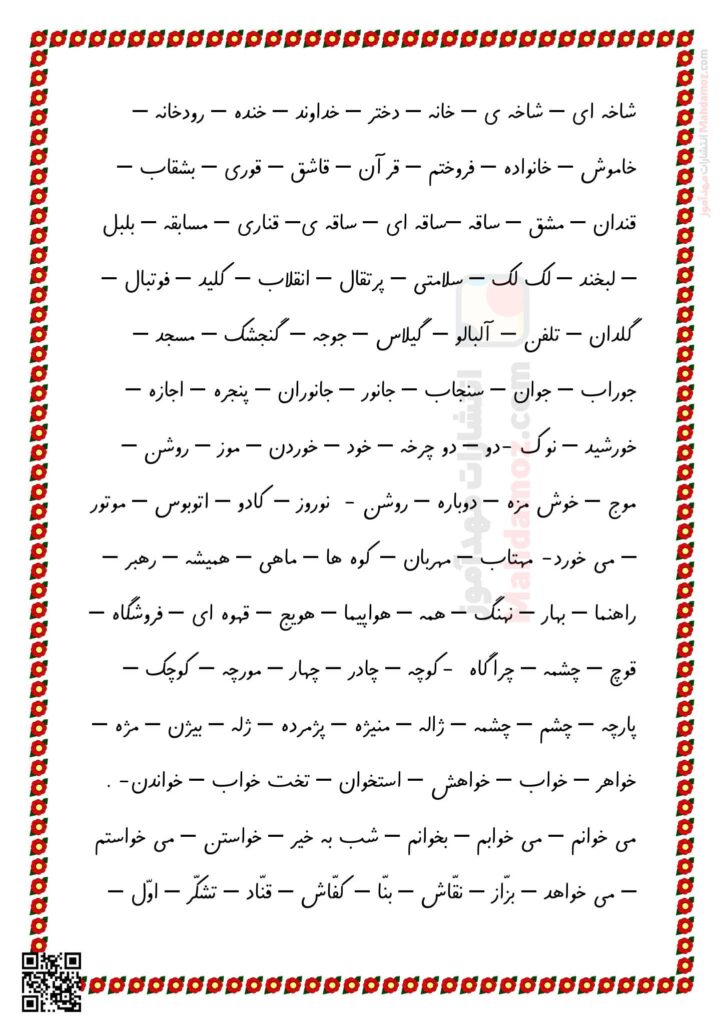 شاخه ای – شاخه ی – خانه – دختر – خداوند – خنده – رودخانه –
خاموش – خانواده – فروختم – قرآن – قاشق – قوری – بشقاب –
قندان – مشق – ساقه –ساقه ای – ساقه ی– قناری – مسابقه – بلبل
– لبخند – لک لک – سلامتی – پرتقال – انقلاب – کلید – فوتبال –
گلدان – تلفن – آلبالو – گیلاس – جوجه – گنجشک – مسجد –
جوراب – جوان – سنجاب – جانور – جانوران – پنجره – اجازه –
خورشید – نوک -دو – دو چرخه – خود – خوردن – موز – روشن –
موج – خوش مزه – دوباره – روشن - نوروز – کادو – اتوبوس – موتور
– می خورد- مهتاب – مهربان – کوه ها – ماهی – همیشه – رهبر –
راهنما – بهار – نهنگ – همه – هواپیما – هویج – قهوه ای – فروشگاه –
قوچ – چشمه – چراگاه -کوچه – چادر – چهار – مورچه – کوچک –
پارچه – چشم – چشمه – ژاله – منیژه – پژمرده – ژله – بیژن – مژه –
خواهر – خواب – خواهش – استخوان – تخت خواب – خواندن- .
می خوانم – می خوابم – بخوانم – شب به خیر – خواستن – می خواستم
– می خواهد – بزّاز – نقّاش – بنّا – کفّاش – قنّاد – تشکّر – اوّل –
انتشارات مهدآموز
Mahdamoz.com
انتشارات مهدآموز Mahdamoz.com